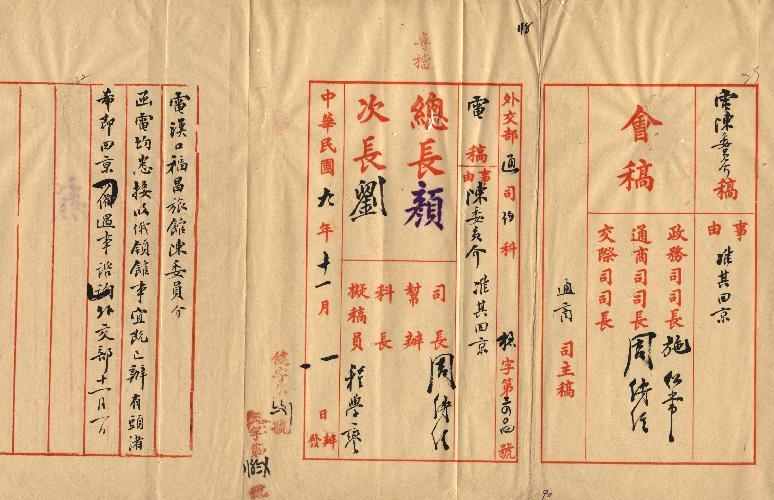 電陳委員介稿
事由
准其回京
會稿
政務司司長施
通商司司長周傳經
交際司司長
通商司主稿
外交部通司 科 字第 號
電稿
事由
陳委員介 准其回京
總長顏
次長劉
司長周傳經
幫辦
科長
擬稿員程學鑾
中華民國九年十一月一日辦發
專檔
電漢口福昌旅館陳委員介
函電均悉接收俄領館事宜既已辦有頭渚
希即回京 遇事諮詢外交部十一月一日